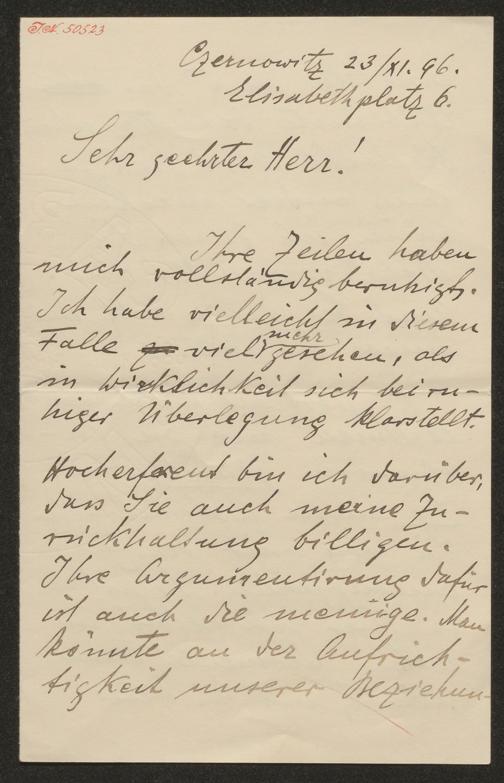 I.N. 50523
Czernowitz 23/XI. 96.
Elisabethplatz 6.
Sehr geehrter Herr!
Ihre Zeilen haben
mich vollständig beruhigt.
Ich habe vielleicht in diesem
mehr
Falle viel gesehen, als
in Wirklichkeit sich bei ru-
higer Überlegung klarstellt.
Hocherfreut bin ich darüber,
dass Sie auch meine Zu-
rückhaltung billigen.
Ihre Argumentirung dafür
ist auch die meinige. Man
könnte an der Aufrich-
tigkeit unserer Beziehun-